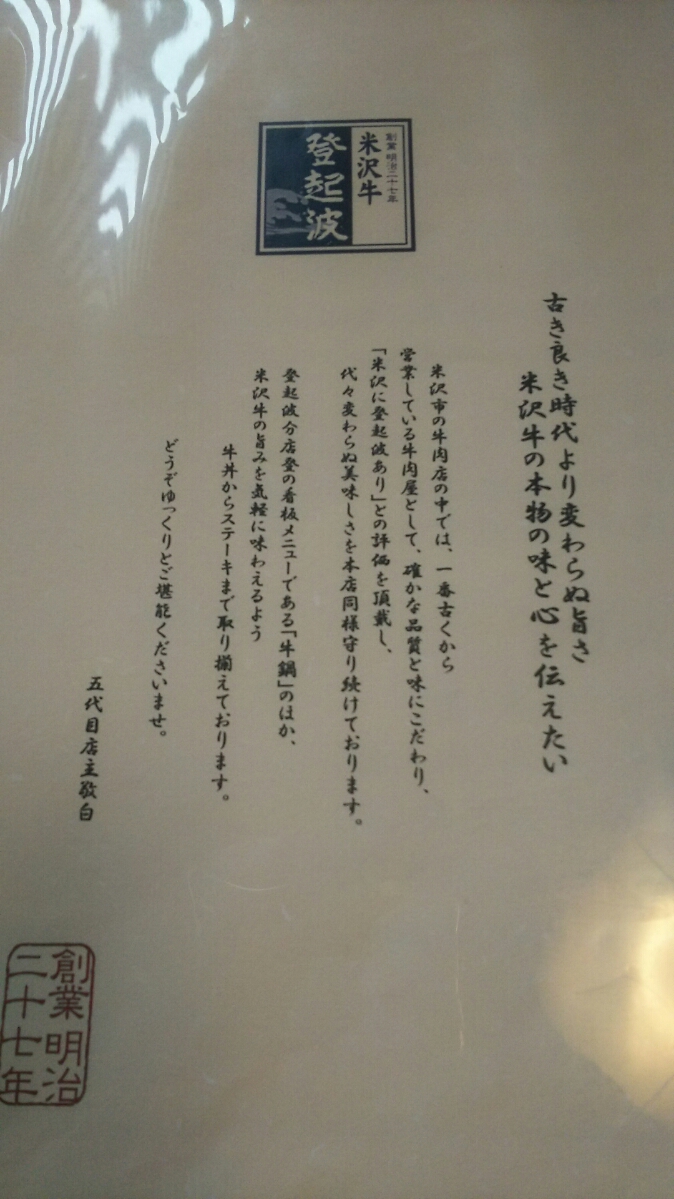 創業明治二十七年
米沢牛
登起波
古き良き時代より変わらぬ旨さ
米沢牛の本物の味と心を伝えたい
米沢市の牛肉店の中では、一番古くから
営業している牛肉屋として、確かな品質と味にこだわり、
「米沢に登起波あり」との評価を頂戴し、
代々変わらぬ美味しさを本店同様守り続けております。
登起波分店登の看板メニューである「牛鍋」のほか、
米沢牛の旨みを気軽に味わえるよう
牛丼からステーキまで取り揃えております。
どうぞゆっくりとご堪能くださいませ。
五代目店主敬白
創業明治
二十七年